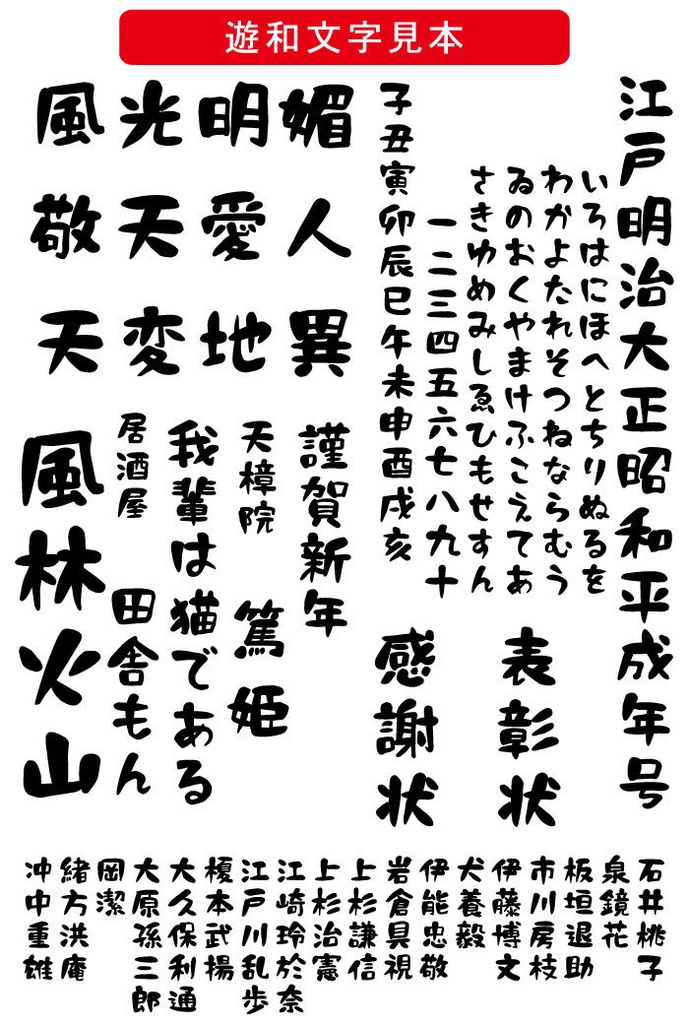 遊和文字見本
江戸明治大正昭和平成年号
いろはにほへとちりぬるを
わかよたれそつねならむう
ゐのおくやまけふこえてあ
さきゆめみしゑひもせすん
一二三四五六七八九十
子丑寅卯辰巳午未申酉戌亥
表彰状
感謝状
媚人異
明愛地
光天変
風敬天
謹賀新年
天樟院
篤姫
我輩は猫である
居酒屋
田舎もん
風林火山
石井桃子
泉鏡花
板垣退助
市川房枝
伊藤博文
犬養毅
伊能忠敬
岩倉具視
上杉謙信
上杉治憲
江崎玲於奈
江戸川乱歩
榎本武揚
大久保利通
大原孫三郎
岡潔
緒方洪庵
沖中重雄